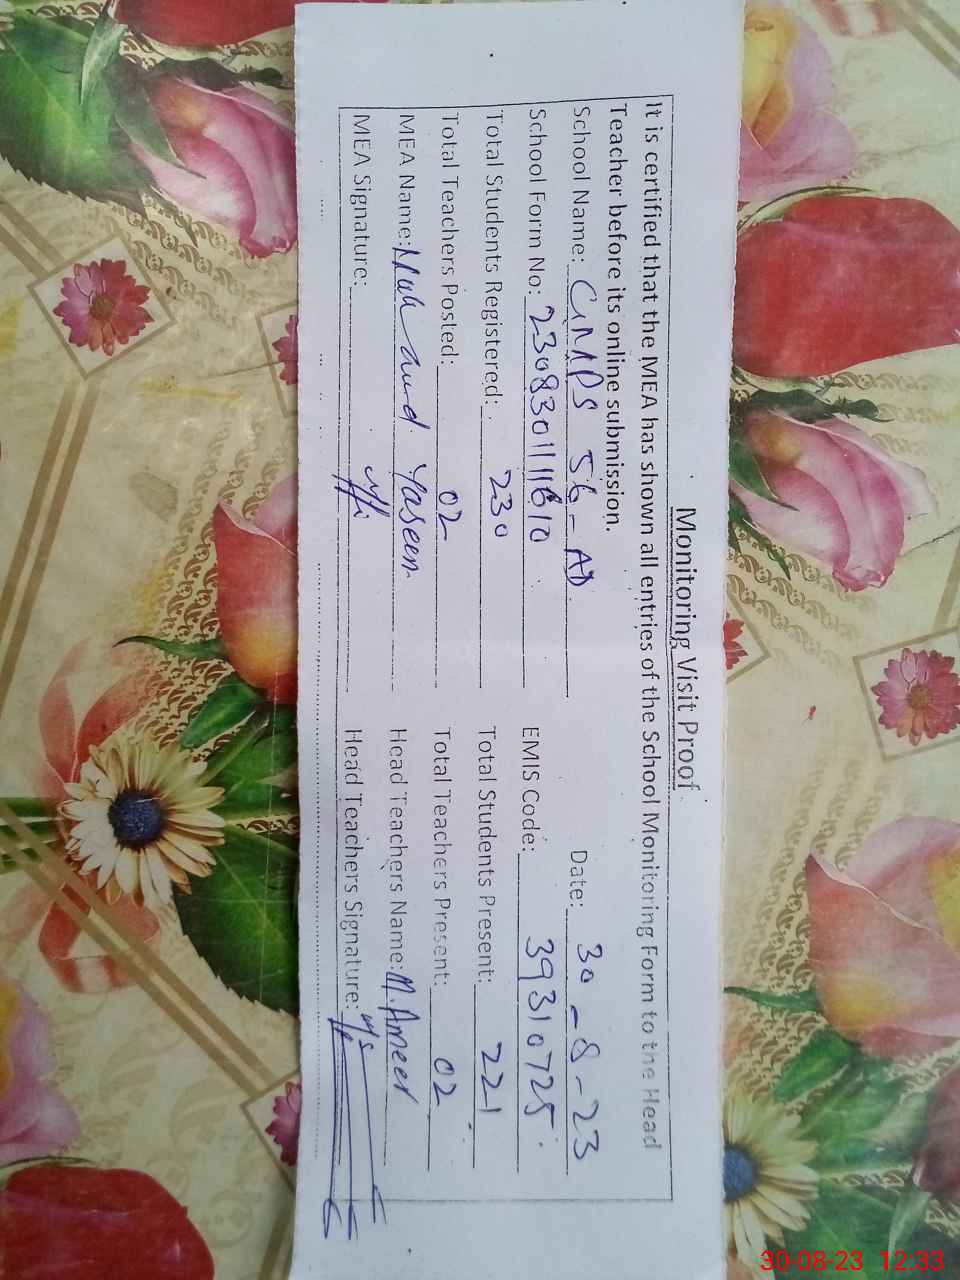 Monitoring Visit Proof
It is certified that the MEA has shown all entries of the School Monitoring Form to the Head
Teacher before its online submission.
School Name: GMPS 56-AD. Date: 30-8-23
School Form No: 230830111610 EMIS Code: 39310725
Total Students Registered: 230 Total Students Present: 221
Total Teachers Posted: 02 Total Teachers Present: 02
MEA Name: Yaseen Head Teachers Name: M. Ameer
MEA Signature: Head Teachers Signature:
30-08-23 12:33